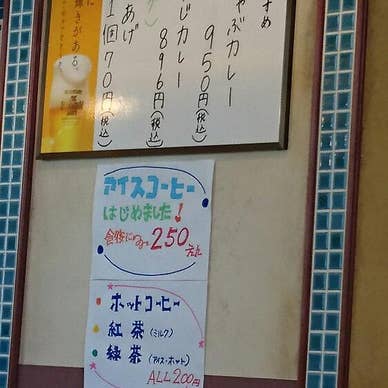 すめ
ゃぶカレー
950円(税込)
じカレー
896円(税込)
あげ
1個70円(税込)
輝きがある。
アイスコーヒー
はじめました!
250えん
ホットコーヒー
紅茶(ミルク)
緑茶(アイス・ホット)
ALL200円